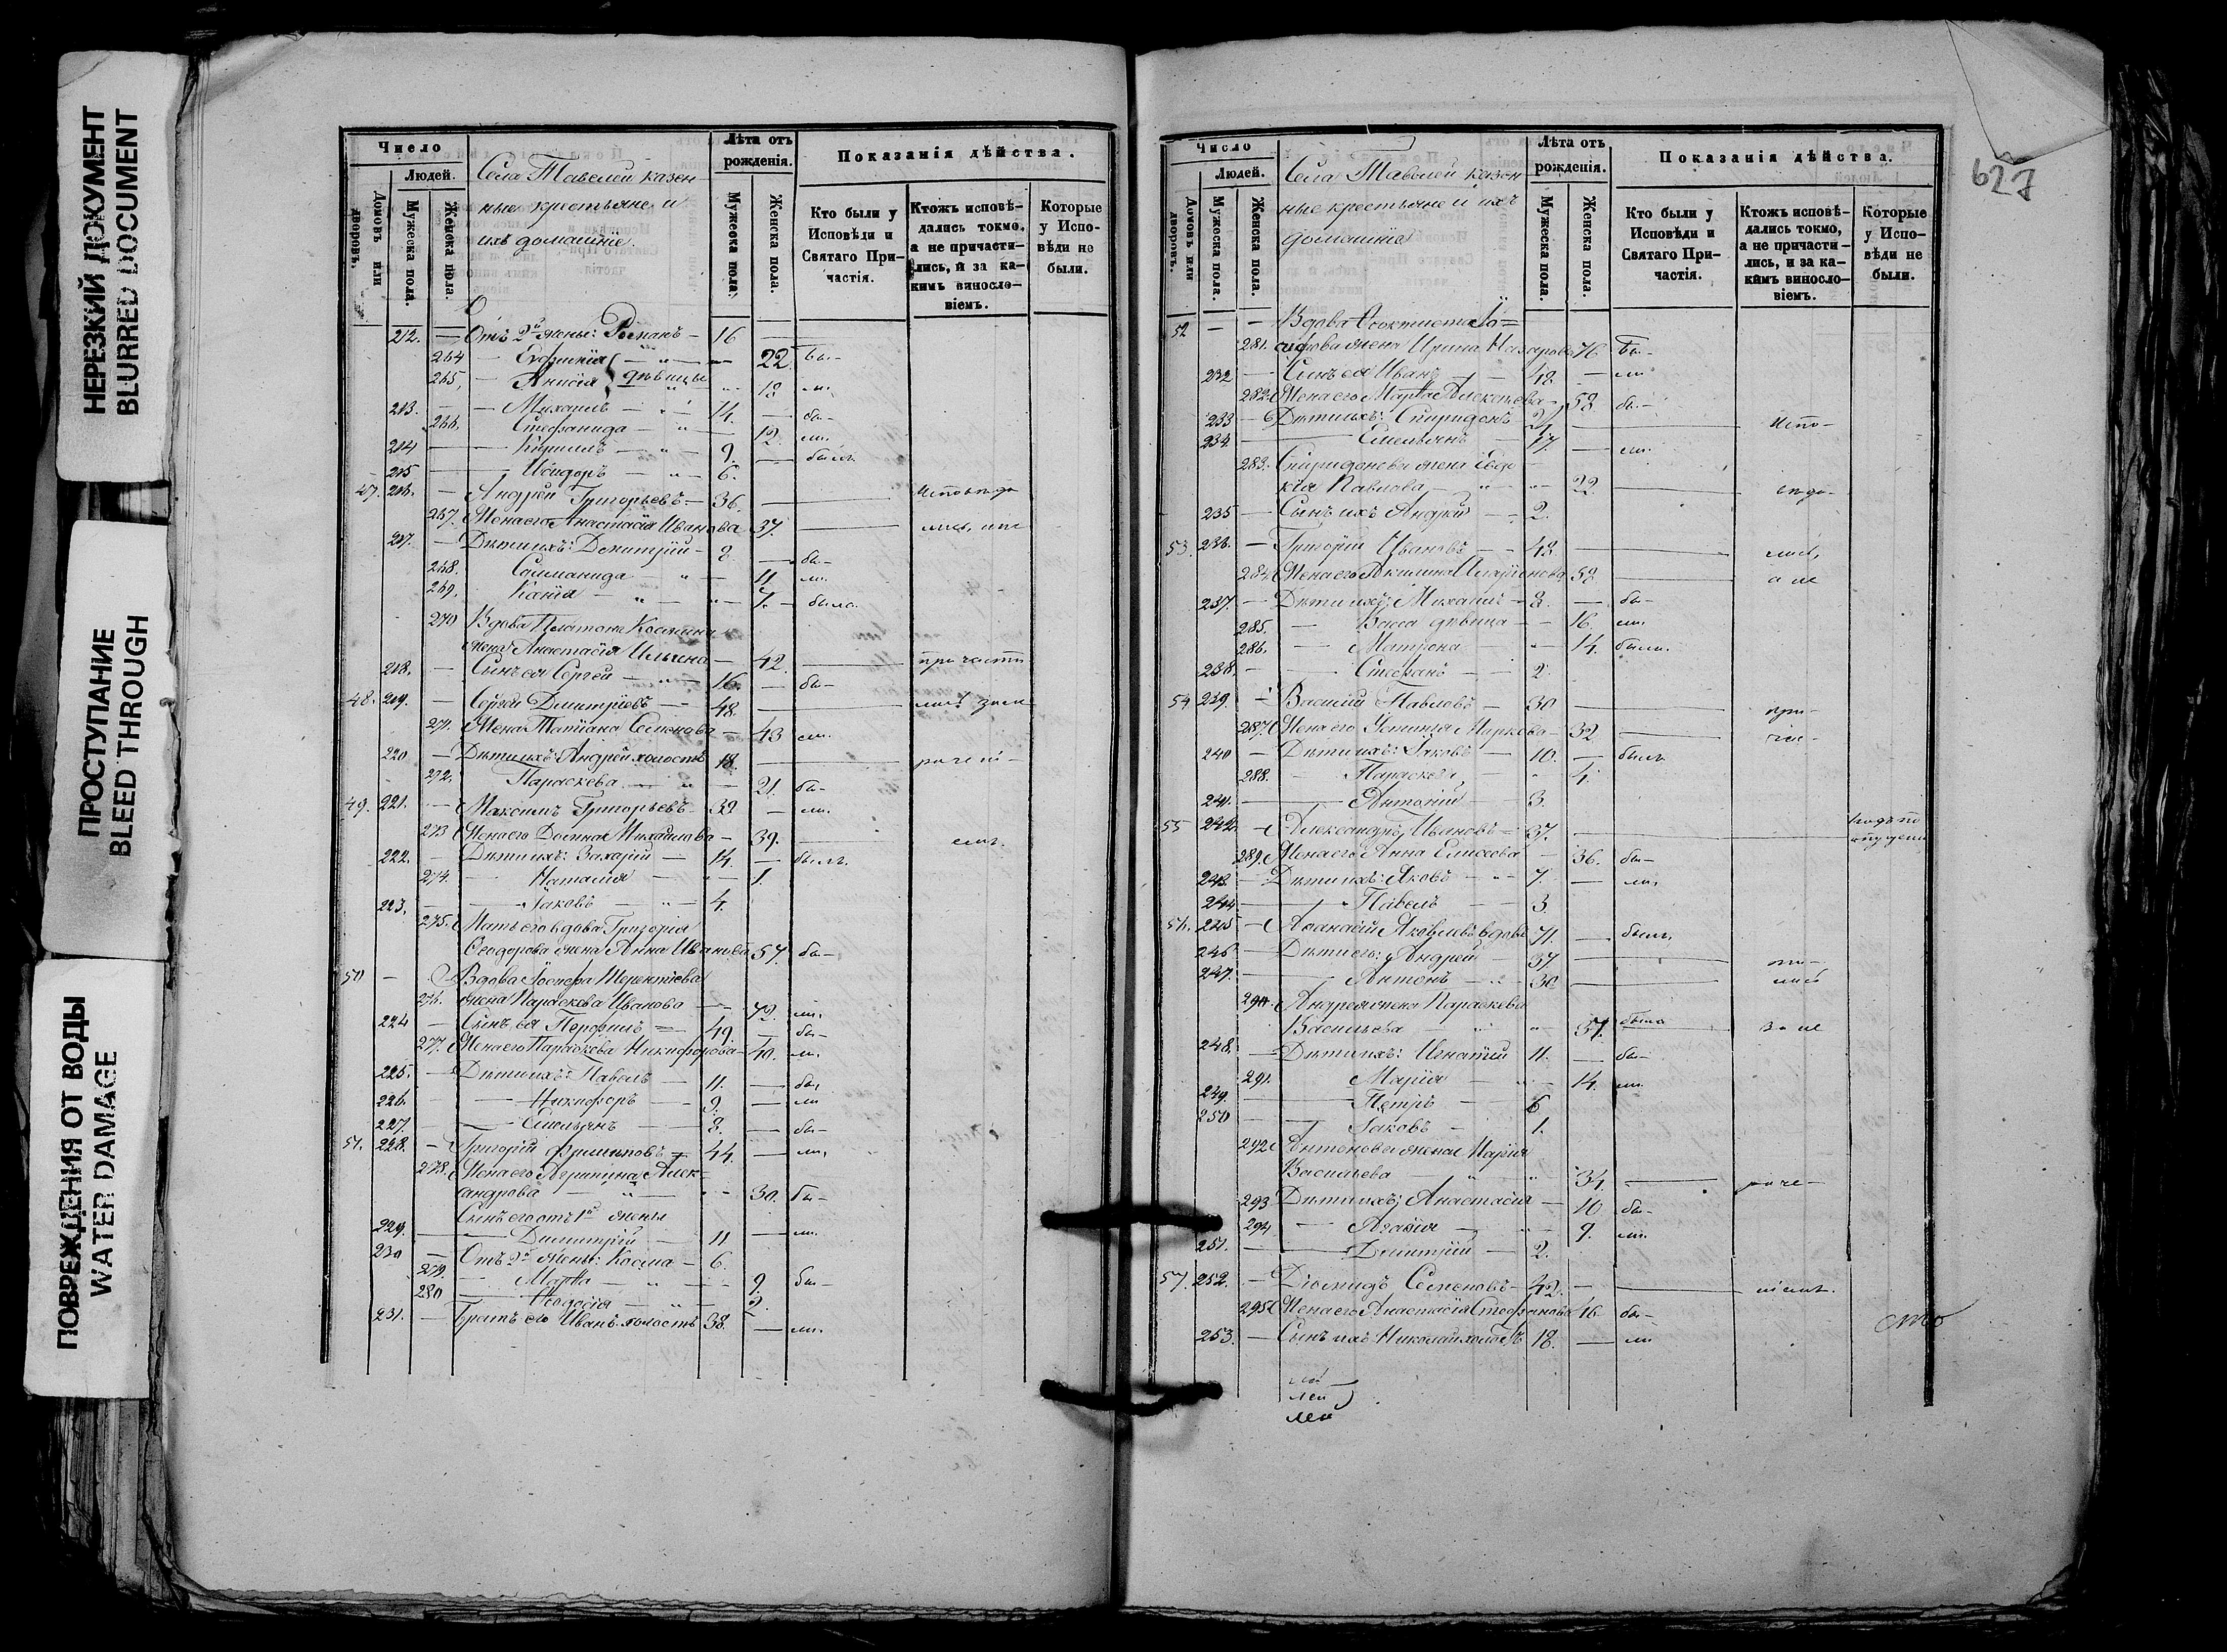 НЕРЕЗКИЙ ДОКУМЕНТ
BLURRED DOCUMENT
ПРОСТУПАНИЕ
BLEED THROUGH
ПОВРЕЖДЕНИЯ ОТ ВОДЫ
WATER DAMAGE
Число
Людей.
Домовъ или дворовъ.
Мужеска пола.
Женска пола.
Села Тавелей казен-
ные крестьяне и
ихъ домашніе.
Лѣта отъ рожденія.
Мужеска пола.
Женска пола.
Показанія дѣйства.
Кто были у Исповѣди и Святаго Причастія.
Ктожъ исповѣ-дались токмо, а не причасти-лись, и за ка-кимъ винослo-віемъ.
Которые у Испо-вѣди не были.
212. — Отъ 2й жены: Романъ — 16
264 — Евфимія 22 бы-
265. — Анисія дѣвицы 18 ли
213. — Михаилъ — 14. бы-
266. Стефанида — 12. ли
214 — Кириллъ — 9. былъ
215 — Исидоръ — 6.
47. 216. — Андрей Григорьевъ — 36. исповѣда
267. Жена его Анастасія Иванова 37. лись, а не
217. — Дѣти ихъ: Димитрій — 8 бы-
268. Саломанида — 11 ли
269. Капія — 7. была
270 Вдова Платона Космина
жена Анастасія Ильина — 42. причасти
218. — Сынъ ея Сергей — 16. бы-
48. 219. — Сергей Дмитріевъ — 48. лись за не
271. Жена Татіана Семенова — 43 ли
220 — Дѣти ихъ: Андрей холостъ 18. раченi-
272. Параскева — 21. бы-
49. 221. — Максимъ Григорьевъ — 39 ли.
273 Жена его Домна Михайлова — 39. емъ.
222. — Дѣти ихъ: Захарій — 14. былъ
274. — Наталія — 1.
223. — Іаковъ — 4.
275. Мать его вдова Григорія
Ѳеодорова жена Анна Иванова 57 бы-
50 — Вдова Іосифа Терентіева
276. жена Параскева Иванова — 72. ли.
224 — Сынъ ея Порфилъ — 49 бы-
277. Жена его Параскева Никифорова — 40. ли.
225. — Дѣти ихъ: Павелъ — 11. бы,
226. — Никифоръ — 9. ли
227. — Емельянъ — 8. бы-
51. 228. — Григорій Филиповъ — 44. ли,
278. Жена его Агрипина Алек-
сандрова — 30. бы-
Сынъ его отъ 1й жены
229. — Димитрій — 11 ли.
230 — Отъ 2й жены: Косма — 6.
279. — Марѳа — 9 бы-
280 — Ѳеодосія — 2.
231. — Братъ его Иванъ холостъ 38. ли.
627
Число
Людей.
Домовъ или дворовъ.
Мужеска пола.
Женска пола.
Села Тавелей казен
ные крестьяне и ихъ
домашніе
Лѣта отъ рожденія.
Мужеска пола.
Женска пола.
Показанія дѣйства.
Кто были у Исповѣди и Святаго При-частія.
Ктожъ исповѣ-дались токмо, а не причасти-лись, и за ка-кимъ виносло-віемъ.
Которые у Испо-вѣди не были.
52 — — Вдова Ѳеоктиста Іо=
281. сифова жена Ирина Назарова 76. бы-
232 — Сынъ ея Иванъ — 48. ли
282. Жена его Марѳа Алексѣева — 58 бы-
233 — Дѣти ихъ: Спиридонъ 21 испо-
234. — Емельянъ — 17. ли.
283. Спиридонова жена Евдо
кія Павлова — 22 вѣда-
235 — Сынъ ихъ Андрей — 2.
53. 236. — Григорій Ивановъ — 48 лись,
284. Жена его Акилина Иларіонова 52. а не
237. — Дѣти ихъ: Михаилъ — 8. бы-
285. — Васса дѣвица — 16. ли.
286. — Матрона — 14. были.
238. — Стефанъ — 2.
54 239. — Василій Павловъ — 30 при-
287. Жена его Устинья Маркова — 32 час-
240 — Дѣти ихъ: Іаковъ — 10. былъ
288. — Параскева — 4.
241. — Антоній — 3.
55 242. — Александръ Ивановъ — 37. по
опущені
289. Жена его Анна Елисеева — 36. бы-
243. — Дѣти ихъ: Яковъ — 7. ли,
244 — Павелъ — 3.
56. 245 — Аѳанасій Яковлевъ вдовъ 71. былъ,
246 — Дѣти его: Андрей — 37 ти-
247. — Антонъ — 30 лись
290. Андрея жена Параскева
Васильева 37. была за не
248. — Дѣти ихъ: Игнатій 11. бы-
291. Марія — 14. ли.
249. — Петръ — 6
250 — Іаковъ — 1.
292 Антонова жена Марія
Васильева — 34. раче-
293 Дѣти ихъ: Анастасія — 10 бы-
294 — Агаѳія — 9. ли.
251. — Дмитрій — 2.
57. 252. — Діомидъ Семеновъ — 42. ніемъ.
295 Жена его Анастасія Стефанова 46. бы-
253. — Сынъ ихъ Николай холостъ 18. ли